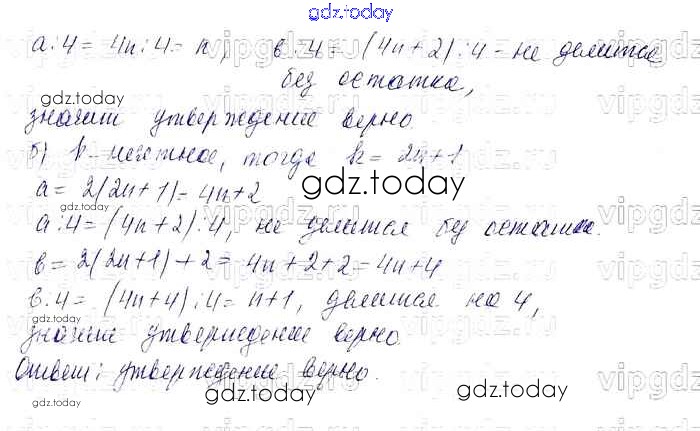 gdz.today
a:4 = 4n:4 = n, в:4 = (4n+2):4 - не делится
без остатка,
gdz.today
значит утверждение верно.
б) k - нечетное, тогда k = 2n+1
gdz.today
a = 2(2n+1) = 4n+2
a:4 = (4n+2):4, не делится без остатка.
в = 2(2n+1)+2 = 4n+2+2 = 4n+4
в:4 = (4n+4):4 = n+1, делится на 4,
значит утверждение верно.
Ответ: утверждение верно.
gdz.today
gdz.today
gdz.today